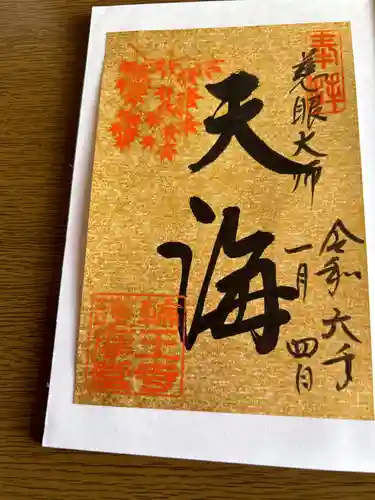 奉拝
慈眼大師
天海
令和六年
一月四日